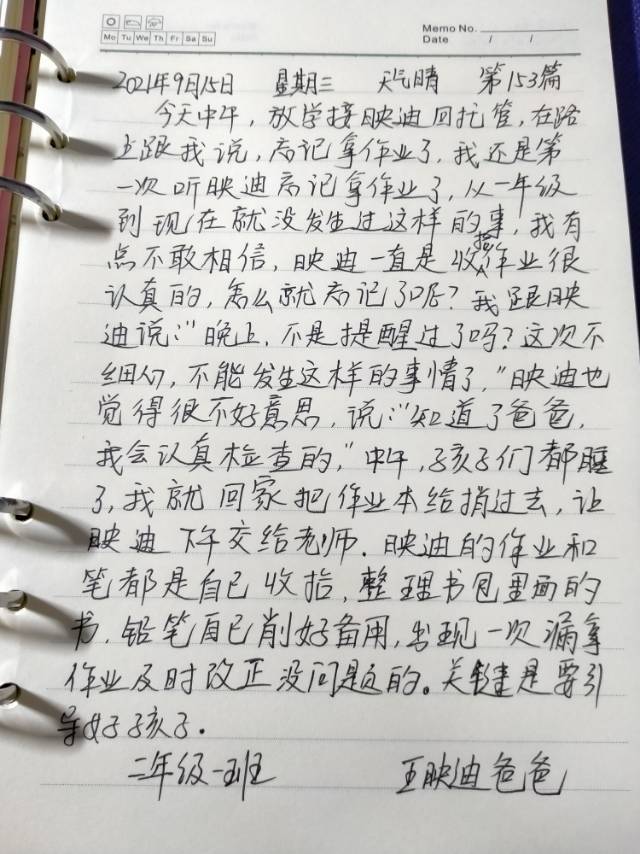 Memo No.
Mo Tu We Th Fr Sa Su
Date / /
2021年9月15日 星期三 天气晴 第153篇
今天中午，放学接映迪回托管，在路
上跟我说，忘记拿作业了，我还是第
一次听映迪忘记拿作业了，从一年级
到现在就没发生过这样的事，我有
点不敢相信，映迪一直是收拾作业很
认真的，怎么就忘记了呢？我跟映
迪说：“晚上，不是提醒过了吗？这次不
细心，不能发生这样的事情了，”映迪也
觉得很不好意思，说：“知道了爸爸，
我会认真检查的，”中午，孩子们都睡
了，我就回家把作业本给捎过去，让
映迪下午交给老师．映迪的作业和
笔都是自己收拾，整理书包里面的
书，铅笔自己削好备用，出现一次漏拿
作业及时改正没问题的。关键是要引
导好孩子．
二年级一班 王映迪爸爸